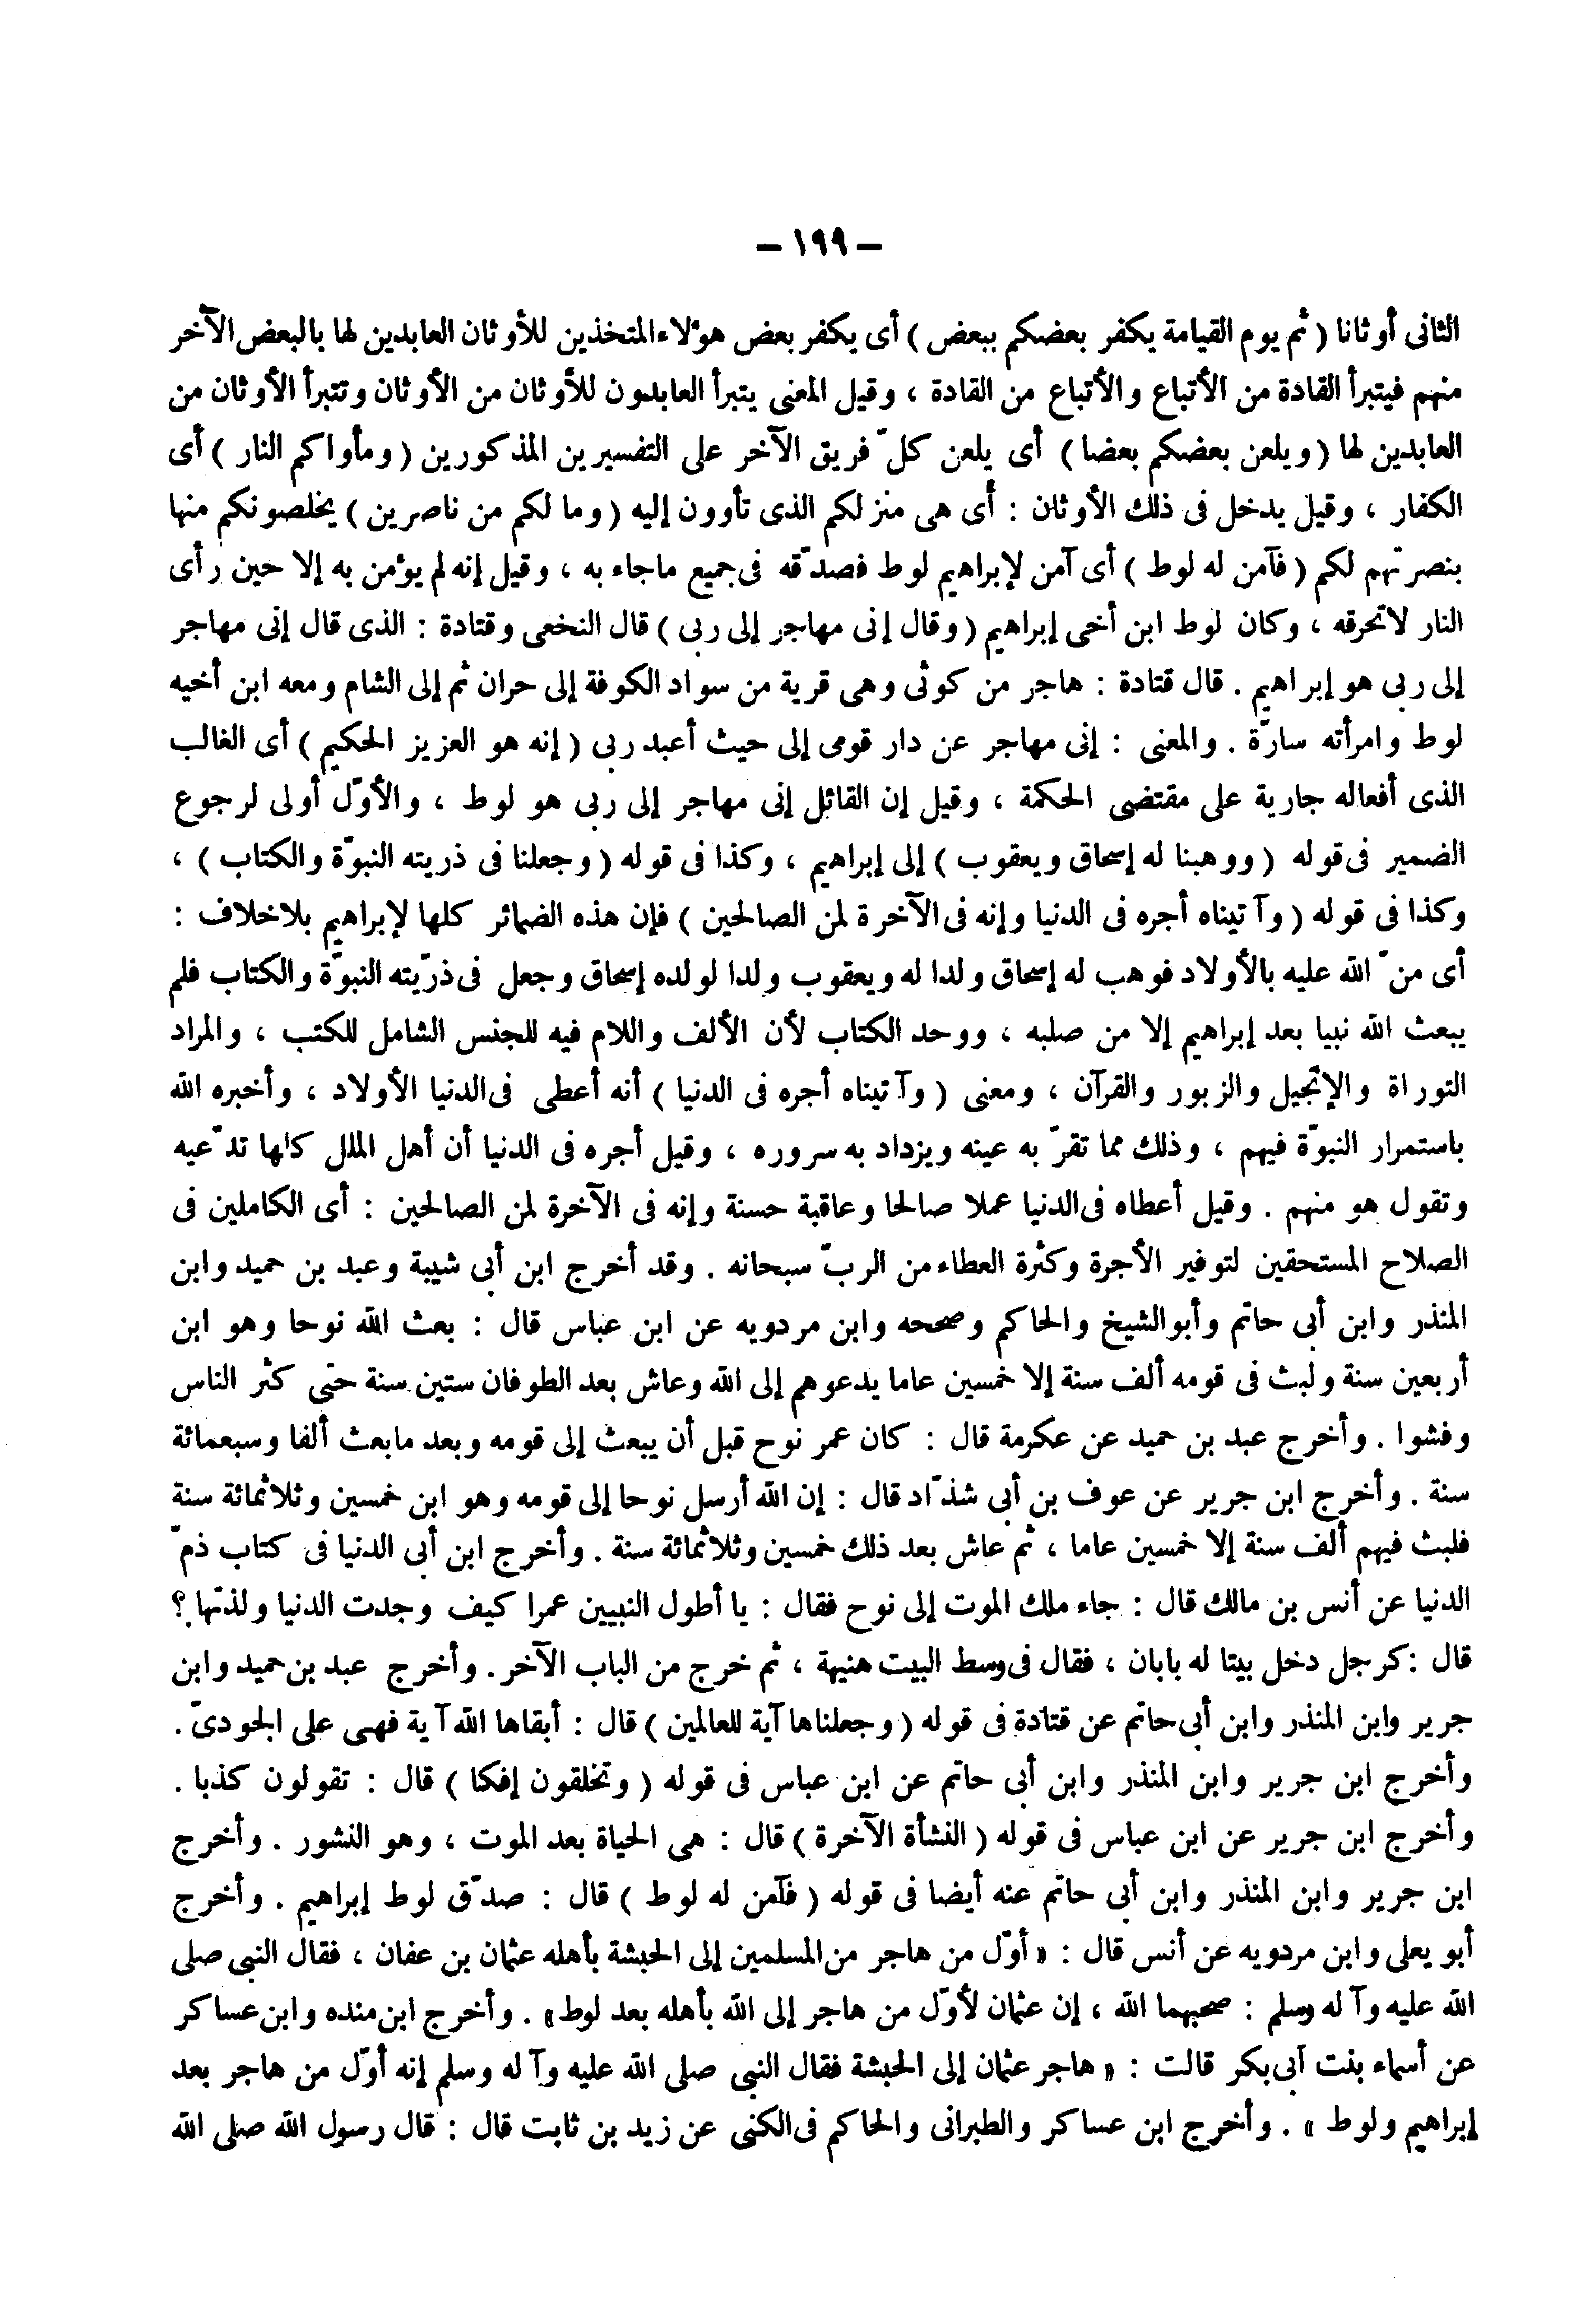 – ١٩٩ –
الثانى أوثانا ( ثم يوم القيامة يكفر بعضكم ببعض ) أى يكفر بعض هؤلاء المتخذين للأوثان العابدين لها بالبعض الآخر
منهم فيتبرأ القادة من الأتباع والأتباع من القادة ، وقيل المعنى يتبرأ العابدون للأوثان من الأوثان وتتبرأ الأوثان من
العابدين لها ( ويلعن بعضكم بعضا ) أى يلعن كلّ فريق الآخر على التفسيرين المذكورين ( ومأواكم النار ) أى
الكفار ، وقيل يدخل فى ذلك الأوثان : أى هى منزلكم الذى تأوون إليه ( وما لكم من ناصرين ) يخلصونكم منها
بنصرتهم لكم ( فآمن له لوط ) أى آمن لإبراهيم لوط فصدّقه فى جميع ماجاء به ، وقيل إنه لم يؤمن به إلا حين رأى
النار لاتحرقه ، وكان لوط ابن أخى إبراهيم ( وقال إنى مهاجر إلى ربى ) قال النخعى وقتادة : الذى قال إنى مهاجر
إلى ربى هو إبراهيم . قال قتادة : هاجر من كوثى وهى قرية من سواد الكوفة إلى حران ثم إلى الشام ومعه ابن أخيه
لوط وامرأته سارّة . والمعنى : إنى مهاجر عن دار قومى إلى حيث أعبد ربى ( إنه هو العزيز الحكيم ) أى الغالب
الذى أفعاله جارية على مقتضى الحكمة ، وقيل إن القائل إنى مهاجر إلى ربى هو لوط ، والأوّل أولى لرجوع
الضمير فى قوله ( ووهبنا له إسحاق ويعقوب ) إلى إبراهيم ، وكذا فى قوله ( وجعلنا فى ذريته النبوّة والكتاب ) ،
وكذا فى قوله ( وآتيناه أجره فى الدنيا وإنه فى الآخرة لمن الصالحين ) فإن هذه الضمائر كلها لإبراهيم بلاخلاف :
أى منّ الله عليه بالأولاد فوهب له إسحاق ولدا له ويعقوب ولدا لولده إسحاق وجعل فى ذرّيته النبوّة والكتاب فلم
يبعث الله نبيا بعد إبراهيم إلا من صلبه ، ووحد الكتاب لأن الألف واللام فيه للجنس الشامل للكتب ، والمراد
التوراة والإنجيل والزبور والقرآن ، ومعنى ( وآتيناه أجره فى الدنيا ) أنه أعطى فى الدنيا الأولاد ، وأخبره الله
باستمرار النبوّة فيهم ، وذلك مما تقرّ به عينه ويزداد به سروره ، وقيل أجره فى الدنيا أن أهل الملل كلها تدّعيه
وتقول هو منهم . وقيل أعطاه فى الدنيا عملا صالحا وعاقبة حسنة وإنه فى الآخرة لمن الصالحين : أى الكاملين فى
الصلاح المستحقين لتوفير الأجرة وكثرة العطاء من الربّ سبحانه . وقد أخرج ابن أبى شيبة وعبد بن حميد وابن
المنذر وابن أبى حاتم وأبوالشيخ والحاكم وصححه وابن مردويه عن ابن عباس قال : بعث الله نوحا وهو ابن
أربعين سنة ولبث فى قومه ألف سنة إلا خمسين عاما يدعوهم إلى الله وعاش بعد الطوفان ستين سنة حتى كثر الناس
وفشوا . وأخرج عبد بن حميد عن عكرمة قال : كان عمر نوح قبل أن يبعث إلى قومه وبعد مابعث ألفا وسبعمائة
سنة . وأخرج ابن جرير عن عوف بن أبى شدّاد قال : إن الله أرسل نوحا إلى قومه وهو ابن خمسين وثلاثمائة سنة
فلبث فيهم ألف سنة إلا خمسين عاما ، ثم عاش بعد ذلك خمسين وثلاثمائة سنة . وأخرج ابن أبى الدنيا فى كتاب ذمّ
الدنيا عن أنس بن مالك قال : جاء ملك الموت إلى نوح فقال : يا أطول النبيين عمرا كيف وجدت الدنيا ولذتها ؟
قال : كرجل دخل بيتا له بابان ، فقال فى وسط البيت هنيهة ، ثم خرج من الباب الآخر . وأخرج عبد بن حميد وابن
جرير وابن المنذر وابن أبى حاتم عن قتادة فى قوله ( وجعلناها آية للعالمين ) قال : أبقاها الله آية فهى على الجودىّ .
وأخرج ابن جرير وابن المنذر وابن أبى حاتم عن ابن عباس فى قوله ( وتخلقون إفكا ) قال : تقولون كذبا .
وأخرج ابن جرير عن ابن عباس فى قوله ( النشأة الآخرة ) قال : هى الحياة بعد الموت ، وهو النشور . وأخرج
ابن جرير وابن المنذر وابن أبى حاتم عنه أيضا فى قوله ( فآمن له لوط ) قال : صدّق لوط إبراهيم . وأخرج
أبو يعلى وابن مردويه عن أنس قال : « أوّل من هاجر من المسلمين إلى الحبشة بأهله عثمان بن عفان ، فقال النبى صلى
الله عليه وآله وسلم : صحبهما الله ، إن عثمان لأوّل من هاجر إلى الله بأهله بعد لوط » . وأخرج ابن منده وابن عساكر
عن أسماء بنت أبى بكر قالت : « هاجر عثمان إلى الحبشة فقال النبى صلى الله عليه وآله وسلم إنه أوّل من هاجر بعد
إبراهيم ولوط » . وأخرج ابن عساكر والطبرانى والحاكم فى الكنى عن زيد بن ثابت قال : قال رسول الله صلى الله